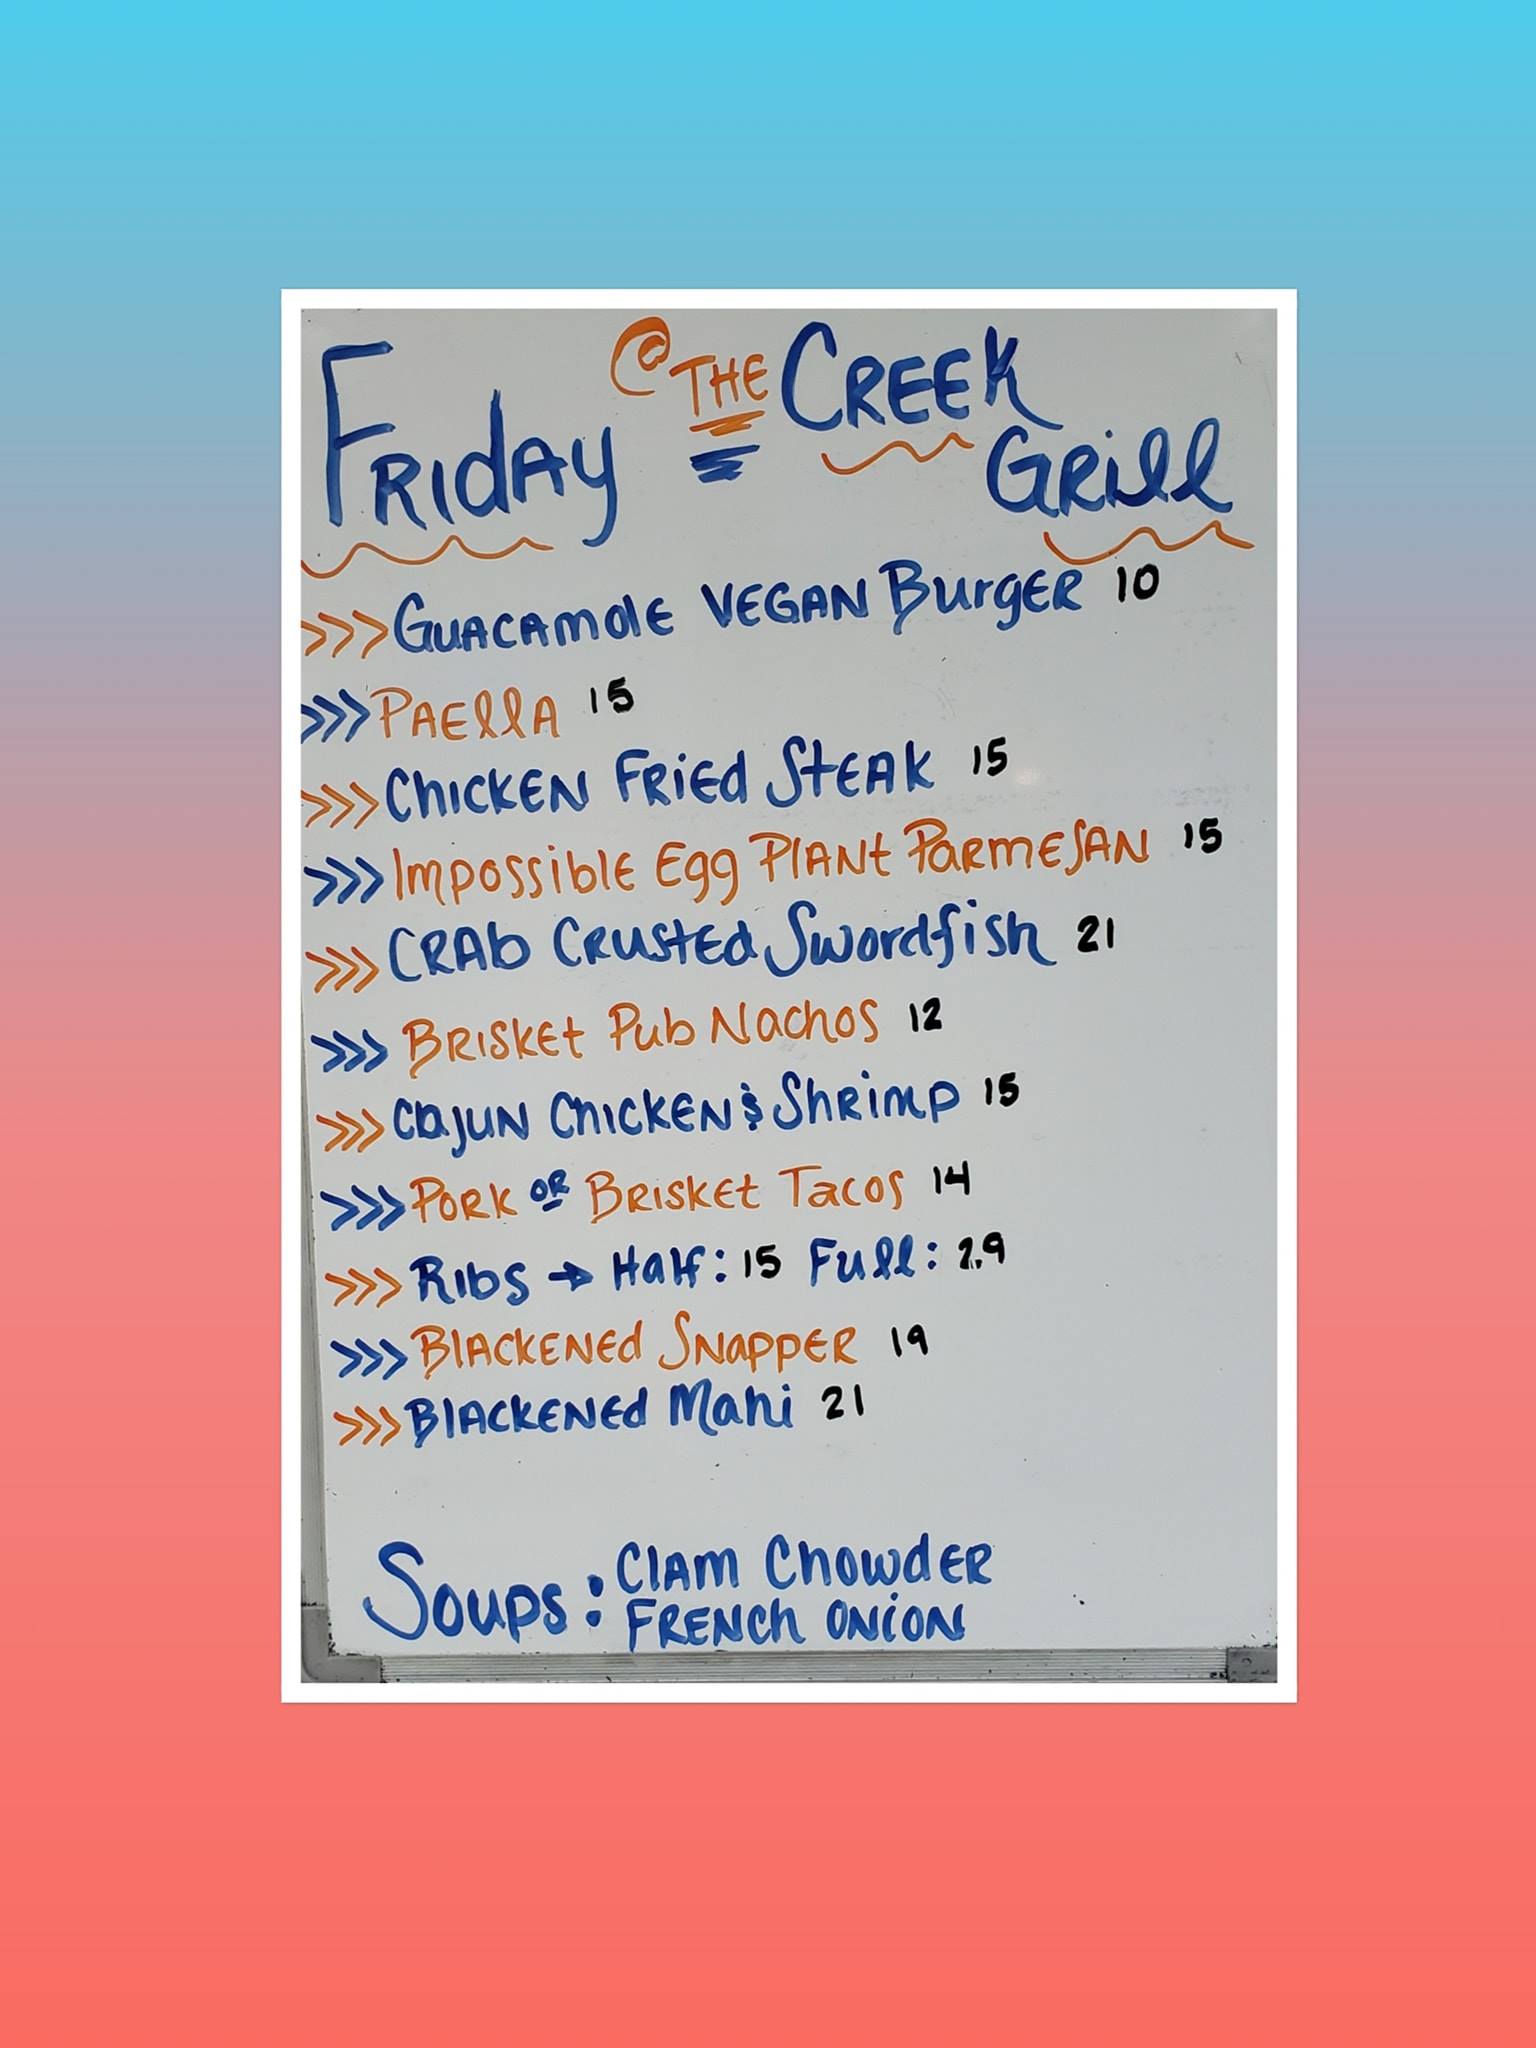 Friday @ THE CREEK GRill
>>> GUACAMOLE VEGAN BURGER 10
>>> PAEllA 15
>>> CHICKEN FRIED STEAK 15
>>> IMPOSSIBLE Egg PLANT PARMESAN 15
>>> CRAb CRUSTEd Swordfish 21
>>> BRISKET Pub Nachos 12
>>> Cajun CHICKEN & ShRimp 15
>>> PORK OR BRISKET TACOS 14
>>> RIbS → Half: 15 Full: 29
>>> BlACKENEd SNAPPER 19
>>> BlACKENEd Mahi 21
Soups: ClAM ChowdER
FRENCH ONION